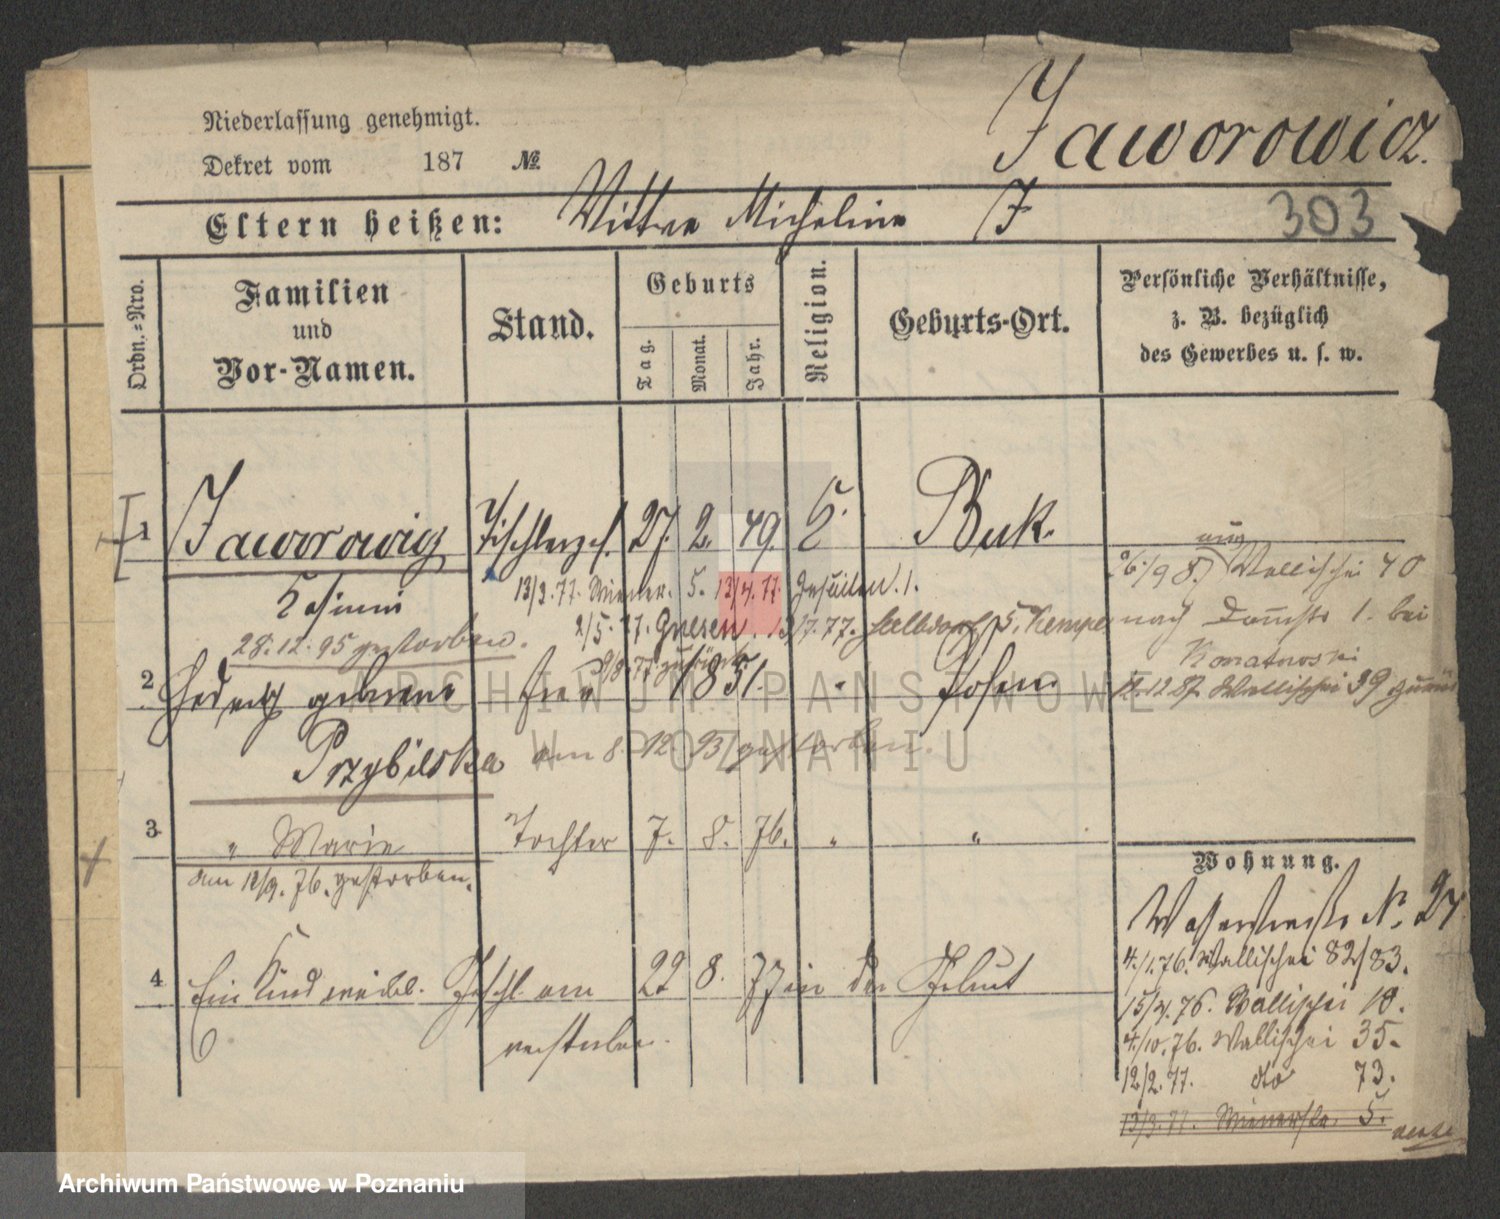 Niederlassung genehmigt.
Dekret vom 187 №
Jaworowicz.
Eltern heißen: Wittwe Micheline J
303
Ordn.-Nro.
Familien
und
Vor-Namen.
Stand.
Geburts
Tag.
Monat.
Jahr.
Religion.
Geburts-Ort.
Persönliche Verhältnisse,
z. B. bezüglich
des Gewerbes u. s. w.
1 Jaworowicz Tischlerges. 27. 2. 49. Buk.
Wallischei 40
13/3. 77. Wiener. 5. 13/4. 77. Jesuiten. 1.
Casimir
2/5. 77. Gnesen. 13/7. 77. 5. Kempe nach Domstr 1. bei
28. 12. 95 gestorben.
9/8. 77. zurück
Konatowski
2 Hedwig geborene Frau 1851. Posen
12. 87. Wallischei 39 zurück
Przybilska am 8. 12. 93 gestorben.
ARCHIWUM PAŃSTWOWE
W POZNANIU
3. " Marie Tochter 7. 8. 76. " "
am 12/9. 76. gestorben.
Wohnung.
Wasserstraße N. 27
4./1. 76. Wallischei 82/83.
4 Ein Kind weibl. Geschl. am 22 8. 77 in der Geburt
15/4. 76. Wallischei 10.
verstorben.
4./10. 76. Wallischei 35.
12/2. 77. do 73.
13/3. 77. Wienerstr. 5.
Archiwum Państwowe w Poznaniu